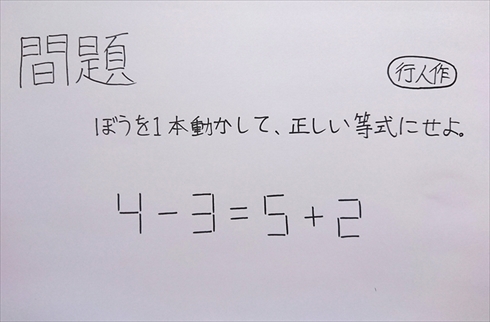 問題
行人作
1ぼうを1本動かして、正しい等式にせよ。
4-3=5+2